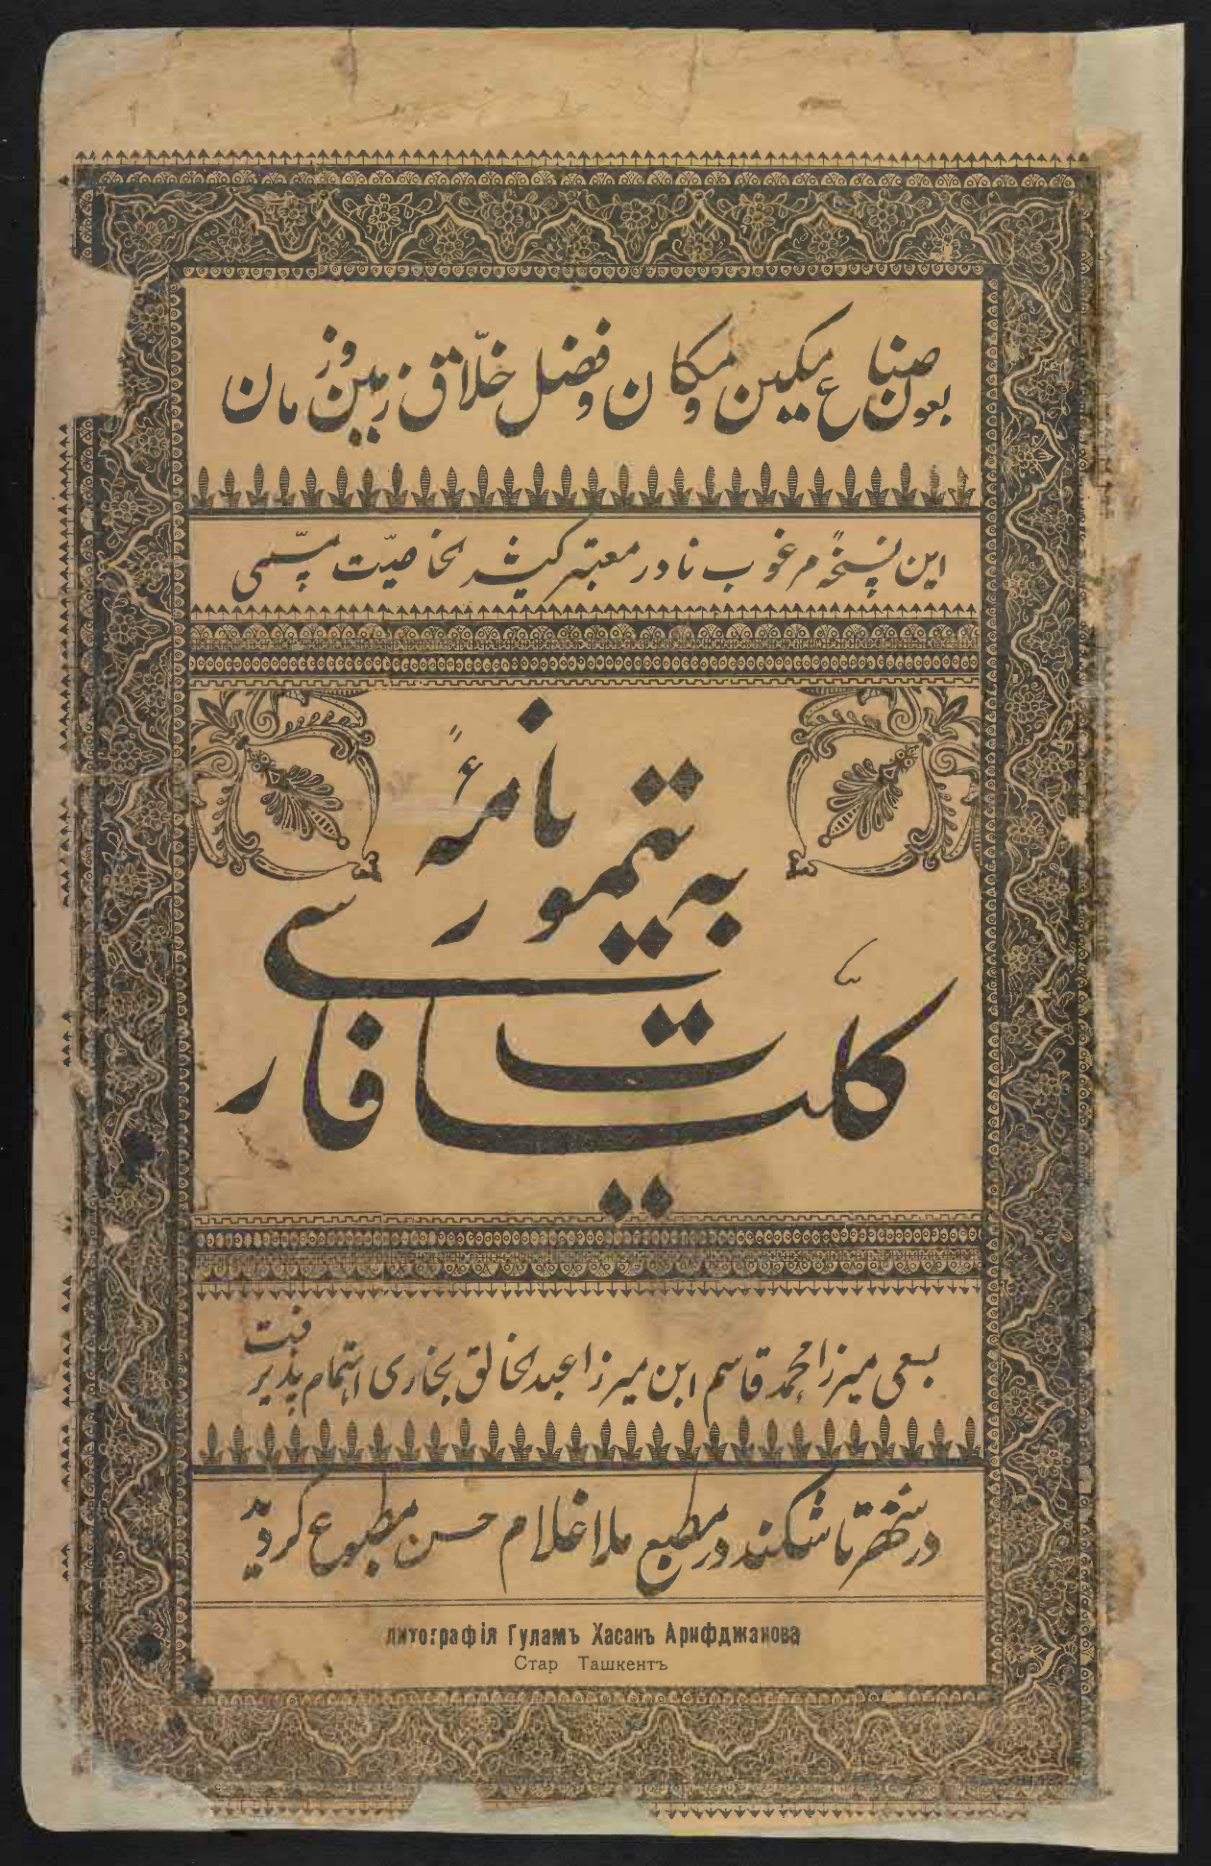 بعون صناع مکین و مکان و فضل خلّاق زمین و زمان
این نسخهٔ مرغوب نادر معتبر کثیر الخاصیّت مسمّی
به تیمور نامهٔ
کلیات فارسی
بسعی میرزا محمد قاسم ابن میرزا عبد الخالق بخاری اهتمام پذیرفت
در شهر تاشکند در مطبع ملا غلام حسن مطبوع گردید
литографія Гуламъ Хасанъ Арифджанова
Стар Ташкентъ